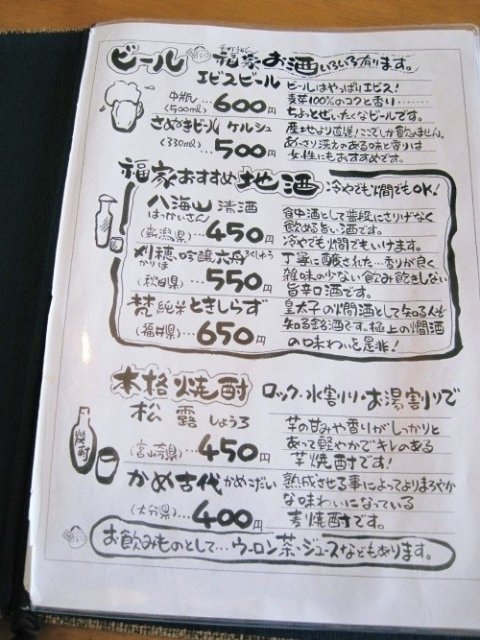 ビール 福家お酒いろいろ有ります。
エビスビール ビールはやっぱりエビス!
中瓶(500ml)…600円 麦芽100%のコクと香り………
ちょっとぜいたくなビールです。
さぬきビール ケルシュ 産地より直送!ここでしか飲めません。
(330ml)…500円 あっさり冴えのある味と香りは
女性にもおすすめです。
福家おすすめ地酒 冷やでも燗でもOK!
八海山 清酒 食中酒として普段にさりげなく
はっかいさん 飲める旨い酒です。
(新潟県)…450円 冷やでも燗でもいけます。
刈穂 吟醸 六舟 丁寧に醸された…香りが良く
かりほ ろくしゅう 雑味の少ない飲み飽きしない
(秋田県)…550円 旨辛口酒です。
梵 純米 ときしらず 皇太子の燗酒として知る人ぞ
(福井県)…650円 知る銘酒です。極上の燗酒
の味わいを是非!
本格焼酎 ロック・水割り・お湯割りで
焼酎
松露 しょうろ 芋の甘みや香りがしっかりと
(宮崎県)…450円 あって軽やかでキレのある
芋焼酎です!
かめ古代 かめこだい 熟成させる事によってよりまろやか
(大分県)…400円 な味わいになっている
麦焼酎です。
お飲みものとして…ウーロン茶・ジュースなどもあります。